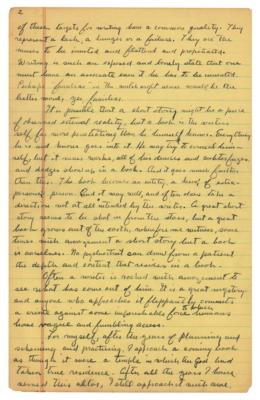 2
of these targets for writing have a common quality. They
represent a lack, a hunger or a failure. They are the
muses to be invited and flattered and propitiated.
Writing is such an exposed and lonely state that one
must have an associate even if he has to be invented.
Perhaps familiar in the witchcraft sense would be the
better word, yes familiar.
It is possible that a short story might be a piece
of observed external reality, but a book is the writers
self, far more penetrating than he himself knows. Everything
he is and knows goes into it. He may try to conceal him
self, but it never works, all of his devices and subterfuges
and dodges show up in a book. And it goes much further
than this. The book becomes an entity, a kind of
person. And it may and often does turn in a
direction not at all intended by the writer. A great short
story seems to be shot in from the stars, but a great
book grows out of the earth, which
times such amazement a short story but a book
is ourselves. No psychiatrist can draw from a patient
the depth and content that resides in a book.
Often a writer is rocked with amazement to
see what has come out of him. It is a great mystery
and anyone who approaches it flippantly commits
a crime against some unpunishable force humans
have vague and fumbling access.
to which
For myself, after the years of planning and
scheming and practicing, I approach a coming book
as though it were a temple in which the God had
taken true residence. After all the years I have
served this altar, I still approach it with awe.